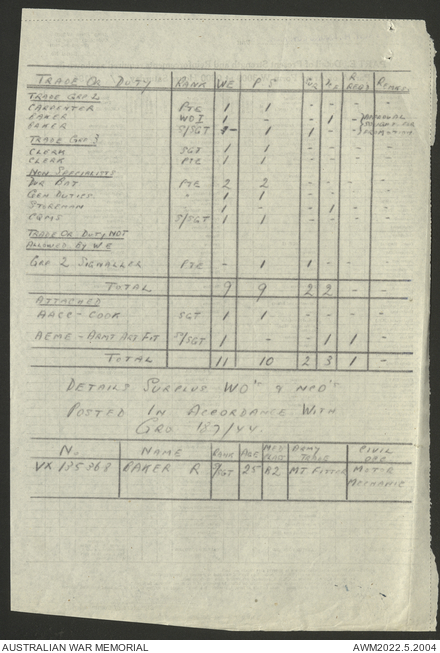 TRADE OR DUTY RANK WE PS SUR DEF R REQD REMARKS
TRADE GRP 2
CARPENTER PTE 1 1 - - -
BAKER WO I 1 - - 1 -
BAKER S/SGT - 1 1 - - PROMOTION
TRADE GRP 3
CLERK SGT 1 1 - - -
CLERK PTE 1 1 - - -
NON SPECIALISTS
BAT PTE 2 2 - - -
GEN DUTIES " 1 1 - - -
STOREMAN " 1 - - 1 -
CQMS S/SGT 1 1 - - -
TRADE OR DUTY NOT
ALLOWED BY WE
GRP 2 SIGNALLER PTE - 1 1 - -
TOTAL 9 9 2 2 - -
ATTACHED
AACC - COOK SGT 1 1 - - - -
AEME - ARMT ART FIT S/SGT 1 - - 1 1 -
TOTAL 11 10 2 3 1 -
DETAILS SURPLUS WO'S & NCO'S
POSTED IN ACCORDANCE WITH
GRO 187/44.
No. NAME RANK AGE MED CLASS ARMY TRADE CIVIL OCC
VX 135368 BAKER R. S/SGT 25 B2 MT FITTER MOTOR
MECHANIC
AUSTRALIAN WAR MEMORIAL AWM2022.5.2004